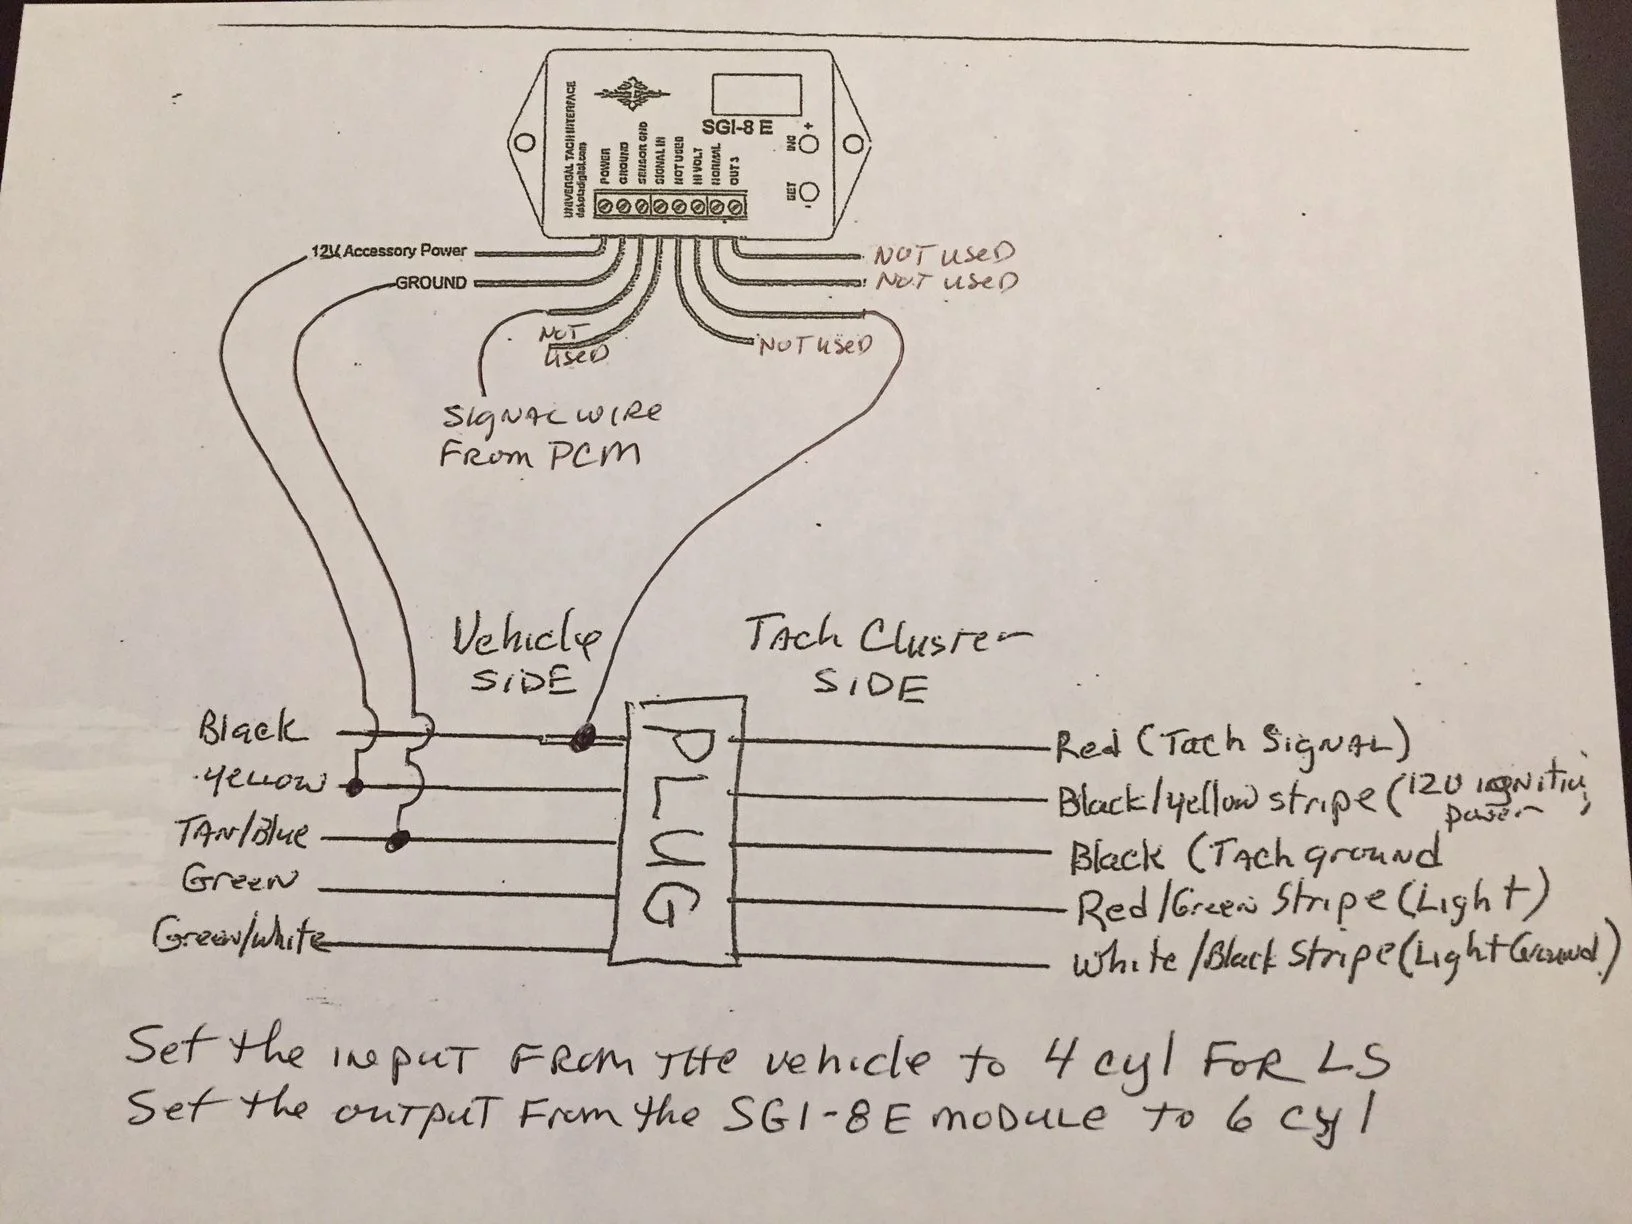 UNIVERSAL TACH INTERFACE
dakotadigital.com
SGI-8 E
POWER
GROUND
SENSOR GND
SIGNAL IN
NOT USED
HI VOLT
NORMAL
OUT 3
INC +
SET -
12V Accessory Power
GROUND
NOT USED
NOT USED
NOT
USED
NOT USED
SIGNAL WIRE
FROM PCM
Vehicle
SIDE
TACH Cluster
SIDE
PLUG
Black
Yellow
TAN/Blue
Green
Green/White
Red (Tach SIGNAL)
Black/Yellow stripe (12V ignition
power)
Black (Tach ground
Red/Green Stripe (Light)
White/Black Stripe (Light Ground)
Set the INPUT FROM THE vehicle to 4 cyl FOR LS
Set the OUTPUT From the SGI-8E MODULE to 6 cyl